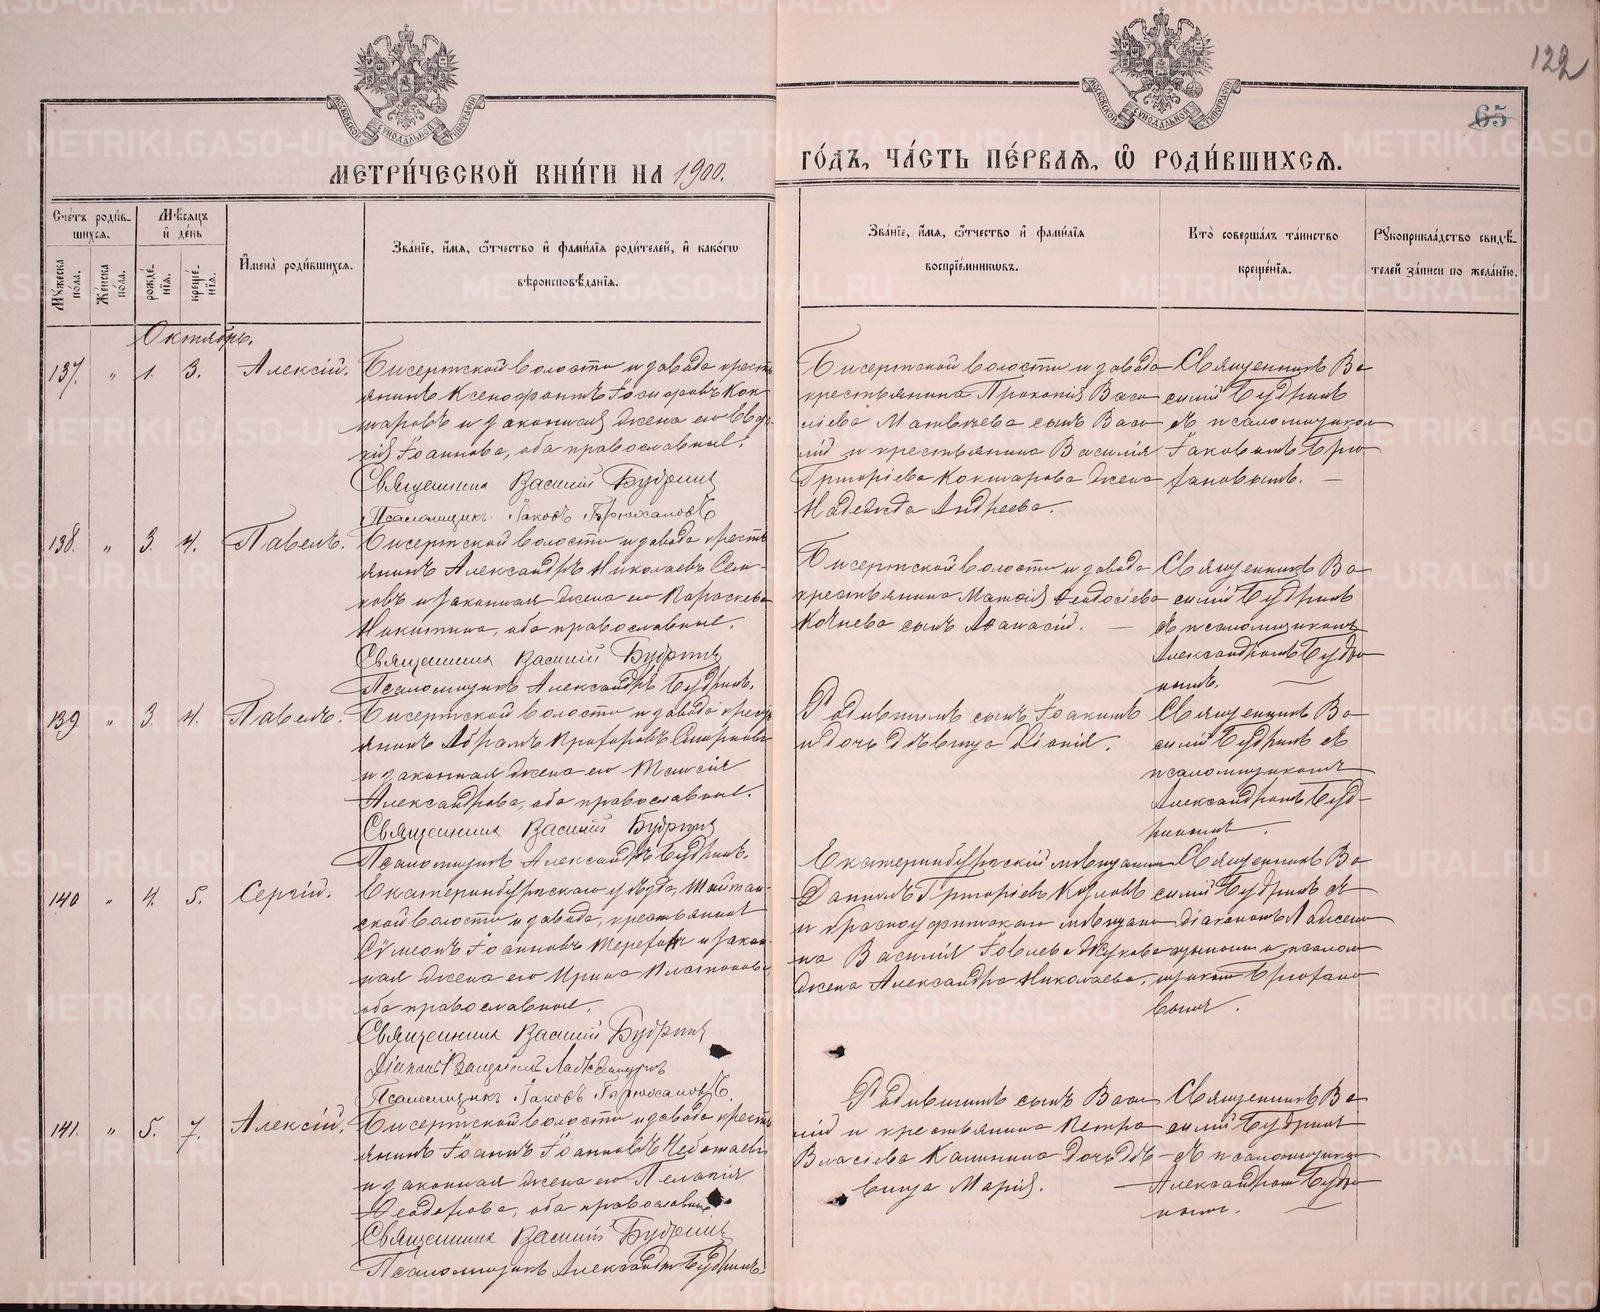 122
65
МЕТРИ́ЧЕСКОЙ КНИ́ГИ НА 1900.
ГО́ДЪ, ЧА́СТЬ ПЕ́РВАѦ, Ѡ҆ РОДИ́ВШИХСѦ.
Сче́тъ роди́в-
шихсѧ.
Му́жеска по́ла.
Же́нска по́ла.
Мѣ́сѧцъ
и҆ де́нь
рожде́нїѧ.
креще́нїѧ.
И҆мена̀ роди́вшихсѧ.
Зва́нїе, и҆́мѧ, ѻ҆́тчество и҆ фами́лїѧ роди́телей, и҆ како́гѡ
вѣроисповѣ́данїѧ.
Зва́нїе, и҆́мѧ, ѻ҆́тчество и҆ фами́лїѧ
воспрїе́мникѡвъ.
Кто̀ соверша́лъ та́инство
креще́нїѧ.
Рꙋкоприкла́дство свидѣ́-
телей за́писи по жела́нїю.
Октябрь.
137. " 1. 3. Алексій.
Бисертской волости и завода кресть
янинъ Ксенофонтъ Іосифовъ Кок-
шаровъ и законная жена его Евдо-
кія Іоаннова, оба православные.
Священникъ Василій Будринъ
Псаломщикъ Іаковъ Брюхановъ
Бисертской волости и завода
крестьянина Прокопія Васи
ліева Матвѣева сынъ Васи
лій и крестьянина Василія
Григоріева Кокшарова жена
Надежда Андреева.
Священникъ Ва
силій Будринъ
съ псаломщикомъ
Іаковомъ Брю
хановымъ.
138. " 3. 4. Павелъ.
Бисертской волости и завода кресть
янинъ Александръ Николаевъ
и законная жена его Параскева
Никитина, оба православные.
Священникъ Василій Будринъ
Псаломщикъ Александръ Будринъ.
Бисертской волости и завода
крестьянина Матвія Ѳеодосіева
сынъ Аѳанасій.
Священникъ Ва
силій Будринъ
съ псаломщикомъ
Александромъ Будри
нымъ.
139 " 3. 4. Павелъ.
Бисертской волости и завода кресть
янинъ Абрамъ Прохоровъ
и законная жена его Таисія
Александрова, оба православные.
Священникъ Василій Будринъ
Псаломщикъ Александръ Будринъ.
Родившимъ сынъ Іоакимъ
и дочь дѣвица Хіонія.
Священникъ Ва
силій Будринъ съ
псаломщикомъ
Александромъ Буд-
ринымъ.
140 " 4. 5. Сергій.
Екатеринбургскаго уѣзда, Шайтан-
ской волости и завода, крестьянинъ
Сѵмеонъ Іоанновъ и закон-
ная жена его Ирина Платонова
оба православные.
Священникъ Василій Будринъ
Діаконъ
Псаломщикъ Іаковъ Брюхановъ.
Екатеринбургскій мѣщанинъ
Даніилъ Григоріевъ Козловъ
и красноуфимскаго мѣщани
на Василія Іовлева Жукова
жена Александра Николаева.
Священникъ Ва
силій Будринъ съ
діакономъ
и псалом
щикомъ Брюхано
вымъ.
141. " 5. 7. Алексій.
Бисертской волости и завода кресть
янинъ Іоаннъ Іоанновъ Чеботаевъ
и законная жена его Пелагія
Ѳеодорова, оба православные
Священникъ Василій Будринъ
Псаломщикъ Александръ Будринъ.
Родившимъ сынъ Васи
лій и крестьянина Петра
Власіева Калинина дочь дѣ-
вица Марія.
Священникъ Ва
силій Будринъ
съ псаломщикомъ
Александромъ Будри
нымъ.